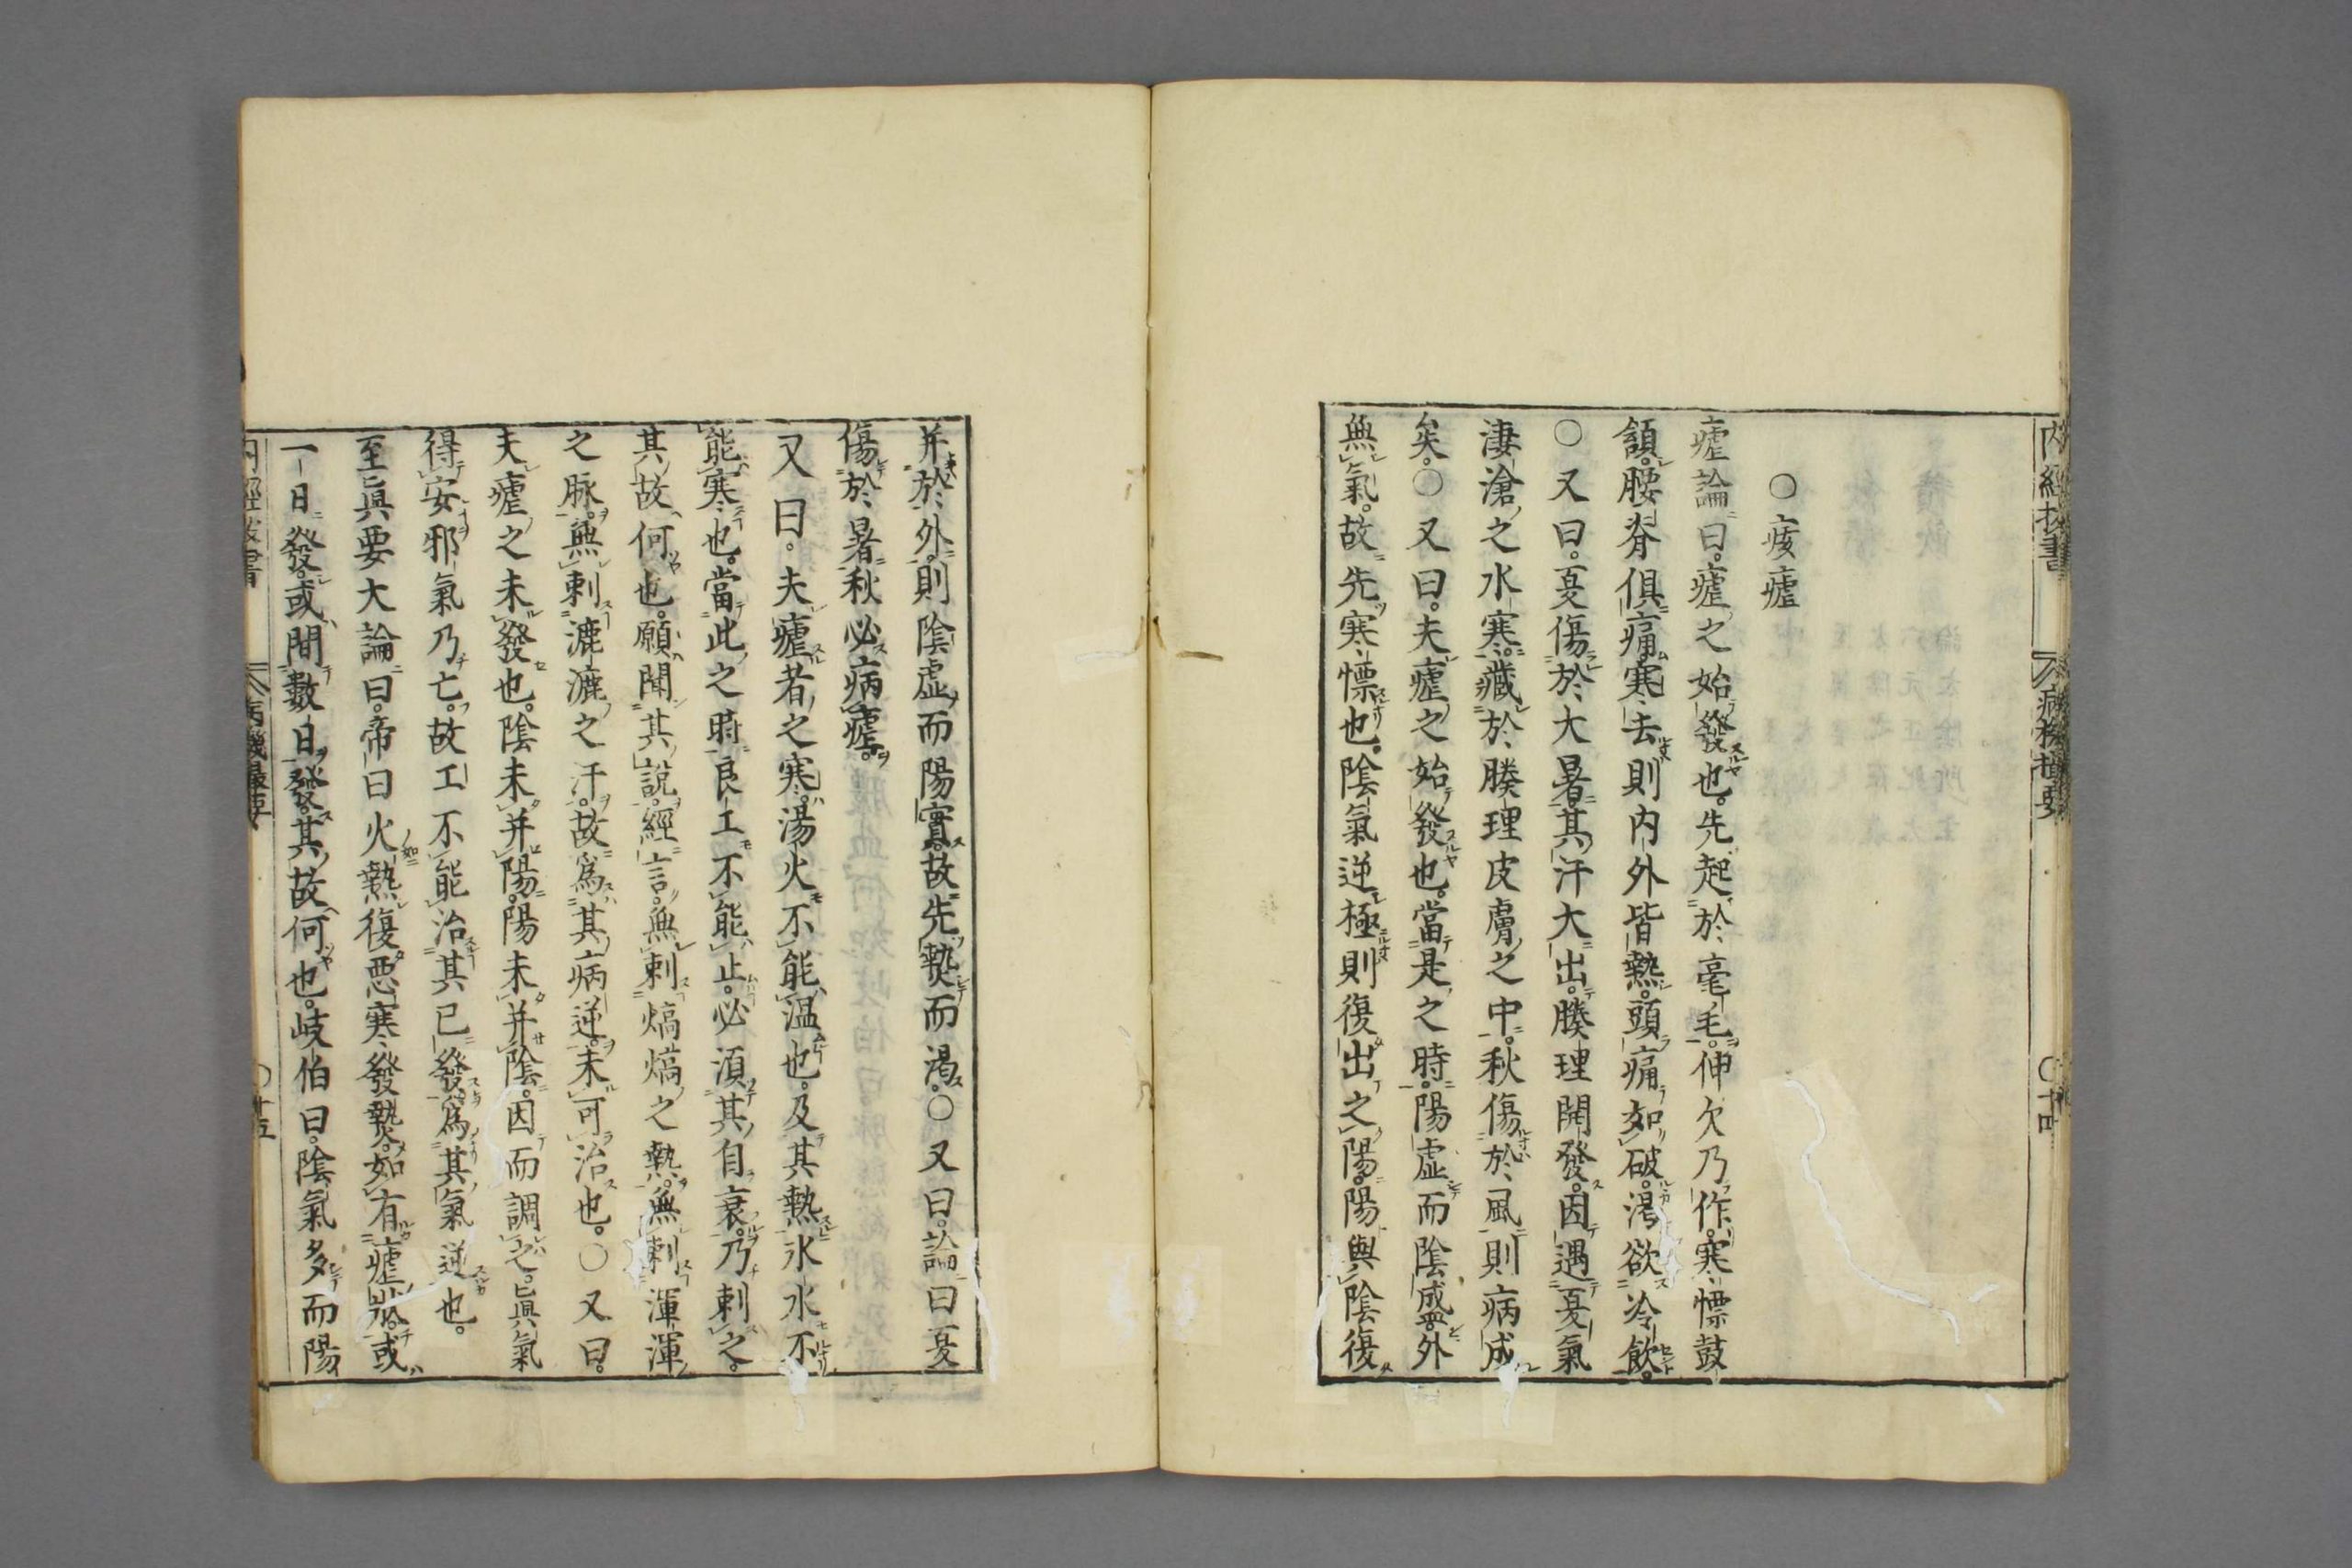 內經抜書 病機撮要 ○十四
○痎瘧
瘧論曰。瘧之始發也。先起於毫毛。伸欠乃作。寒慄鼓
頷。腰脊俱痛。寒去則内外皆熱。頭痛如破。渇欲冷飲。
○又曰。夏傷於大暑。其汗大出。腠理開發。因遇夏氣
淒滄之水寒。藏於腠理皮膚之中。秋傷於風則病成
矣。○又曰。夫瘧之始發也。當是之時。陽虚而陰盛。外
無氣。故先寒慄也。陰氣逆極則復出之陽。陽與陰復
并於外。則陰虚而陽實。故先熱而渇。○又曰。論曰夏
傷於暑秋必病瘧。
又曰。夫瘧者之寒。湯火不能温也。及其熱氷水不
能寒也。當此之時良工不能止。必須其自衰。乃刺之。
其故何也。願聞其說。經言。無刺熇熇之熱。無刺渾渾
之脉。無刺漉漉之汗。故爲其病逆。未可治也。○又曰。
夫瘧之未發也。陰未并陽。陽未并陰。因而調之。眞氣
得安邪氣乃亡。故工不能治其已發。爲其氣逆也。
至眞要大論曰。帝曰火熱復惡寒發熱。如有瘧狀。或
一日發。或間數日發。其故何也。岐伯曰。陰氣多而陽
病機撮要 ○十五